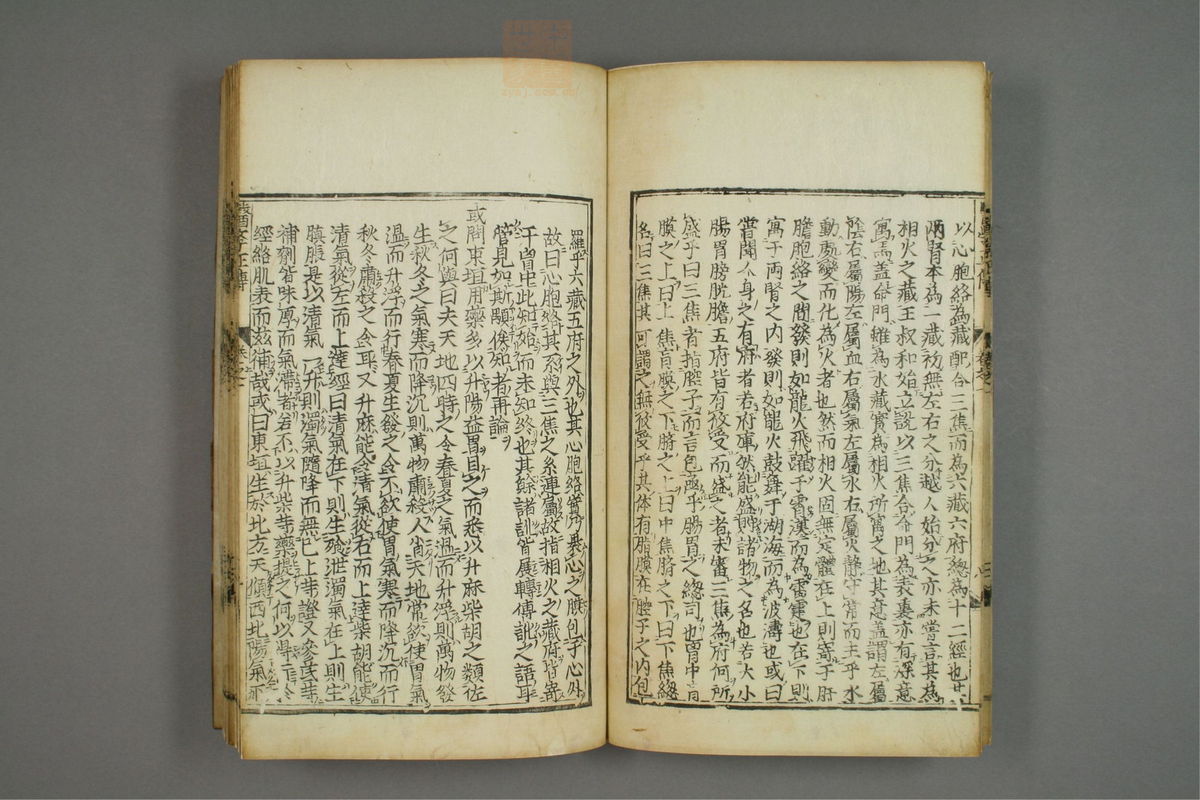 以心胞絡為藏配合三焦而為六藏六府總為十二經也其
兩腎本為一藏初無左右之分越人始分之亦未嘗言其為
相火之藏王叔和始立說以三焦合命門為表裏亦有深意
寓焉蓋命門雖為水藏實為相火所寓之地其意蓋謂左屬
陰右屬陽左屬血右屬氣左屬水右屬火靜守常而主乎水
動處變而化為火者也然而相火固無定體在上則寄于肝
膽胞絡之間發則如龍火飛躍于霄漢而為雷霆也在下則
寓于兩腎之内發則如龍火鼓舞于湖海而為波濤也或曰
嘗聞人身之有府者若府庫然能盛貯諸物之名也若大小
腸胃膀胱膽五府皆有攸受而盛之者未審三焦為府何所
盛乎曰三焦者指腔子而言包涵乎腸胃之總司也胃中肓
膜之上曰上焦肓膜之下臍之上曰中焦臍之下曰下焦總
名曰三焦其可謂之無攸受乎其体有脂膜在腔子之内包
羅乎六藏五府之外也其心胞絡實乃裹心之膜包于心外
故曰心胞絡其系與三焦之系連屬故指相火之藏府皆寄
于胷中此知始而未知終也其餘諸訓皆展轉傳訛之語耳
管見如斯願俟知者再論
或問東垣用藥多以升陽益胃目之而悉以升麻柴胡之類佐
之何與曰夫天地四時之令春夏之氣溫而升浮則萬物發
生秋冬之氣寒而降沉則萬物肅殺人肖天地常欲使胃氣
温而升浮而行春夏生發之令不欲使胃氣寒而降沉而行
秋冬肅殺之令耳又升麻能令清氣從右而上達柴胡能使
清氣從左而上達經曰清氣在下則生飱泄濁氣在上則生
䐜脹是以清氣一升則濁氣隨降而無已上等證又參芪等
補劑皆味厚而氣滯者若不以升柴等藥提之何以得
經絡肌表而滋補哉或曰東垣生於北方天傾西北陽氣